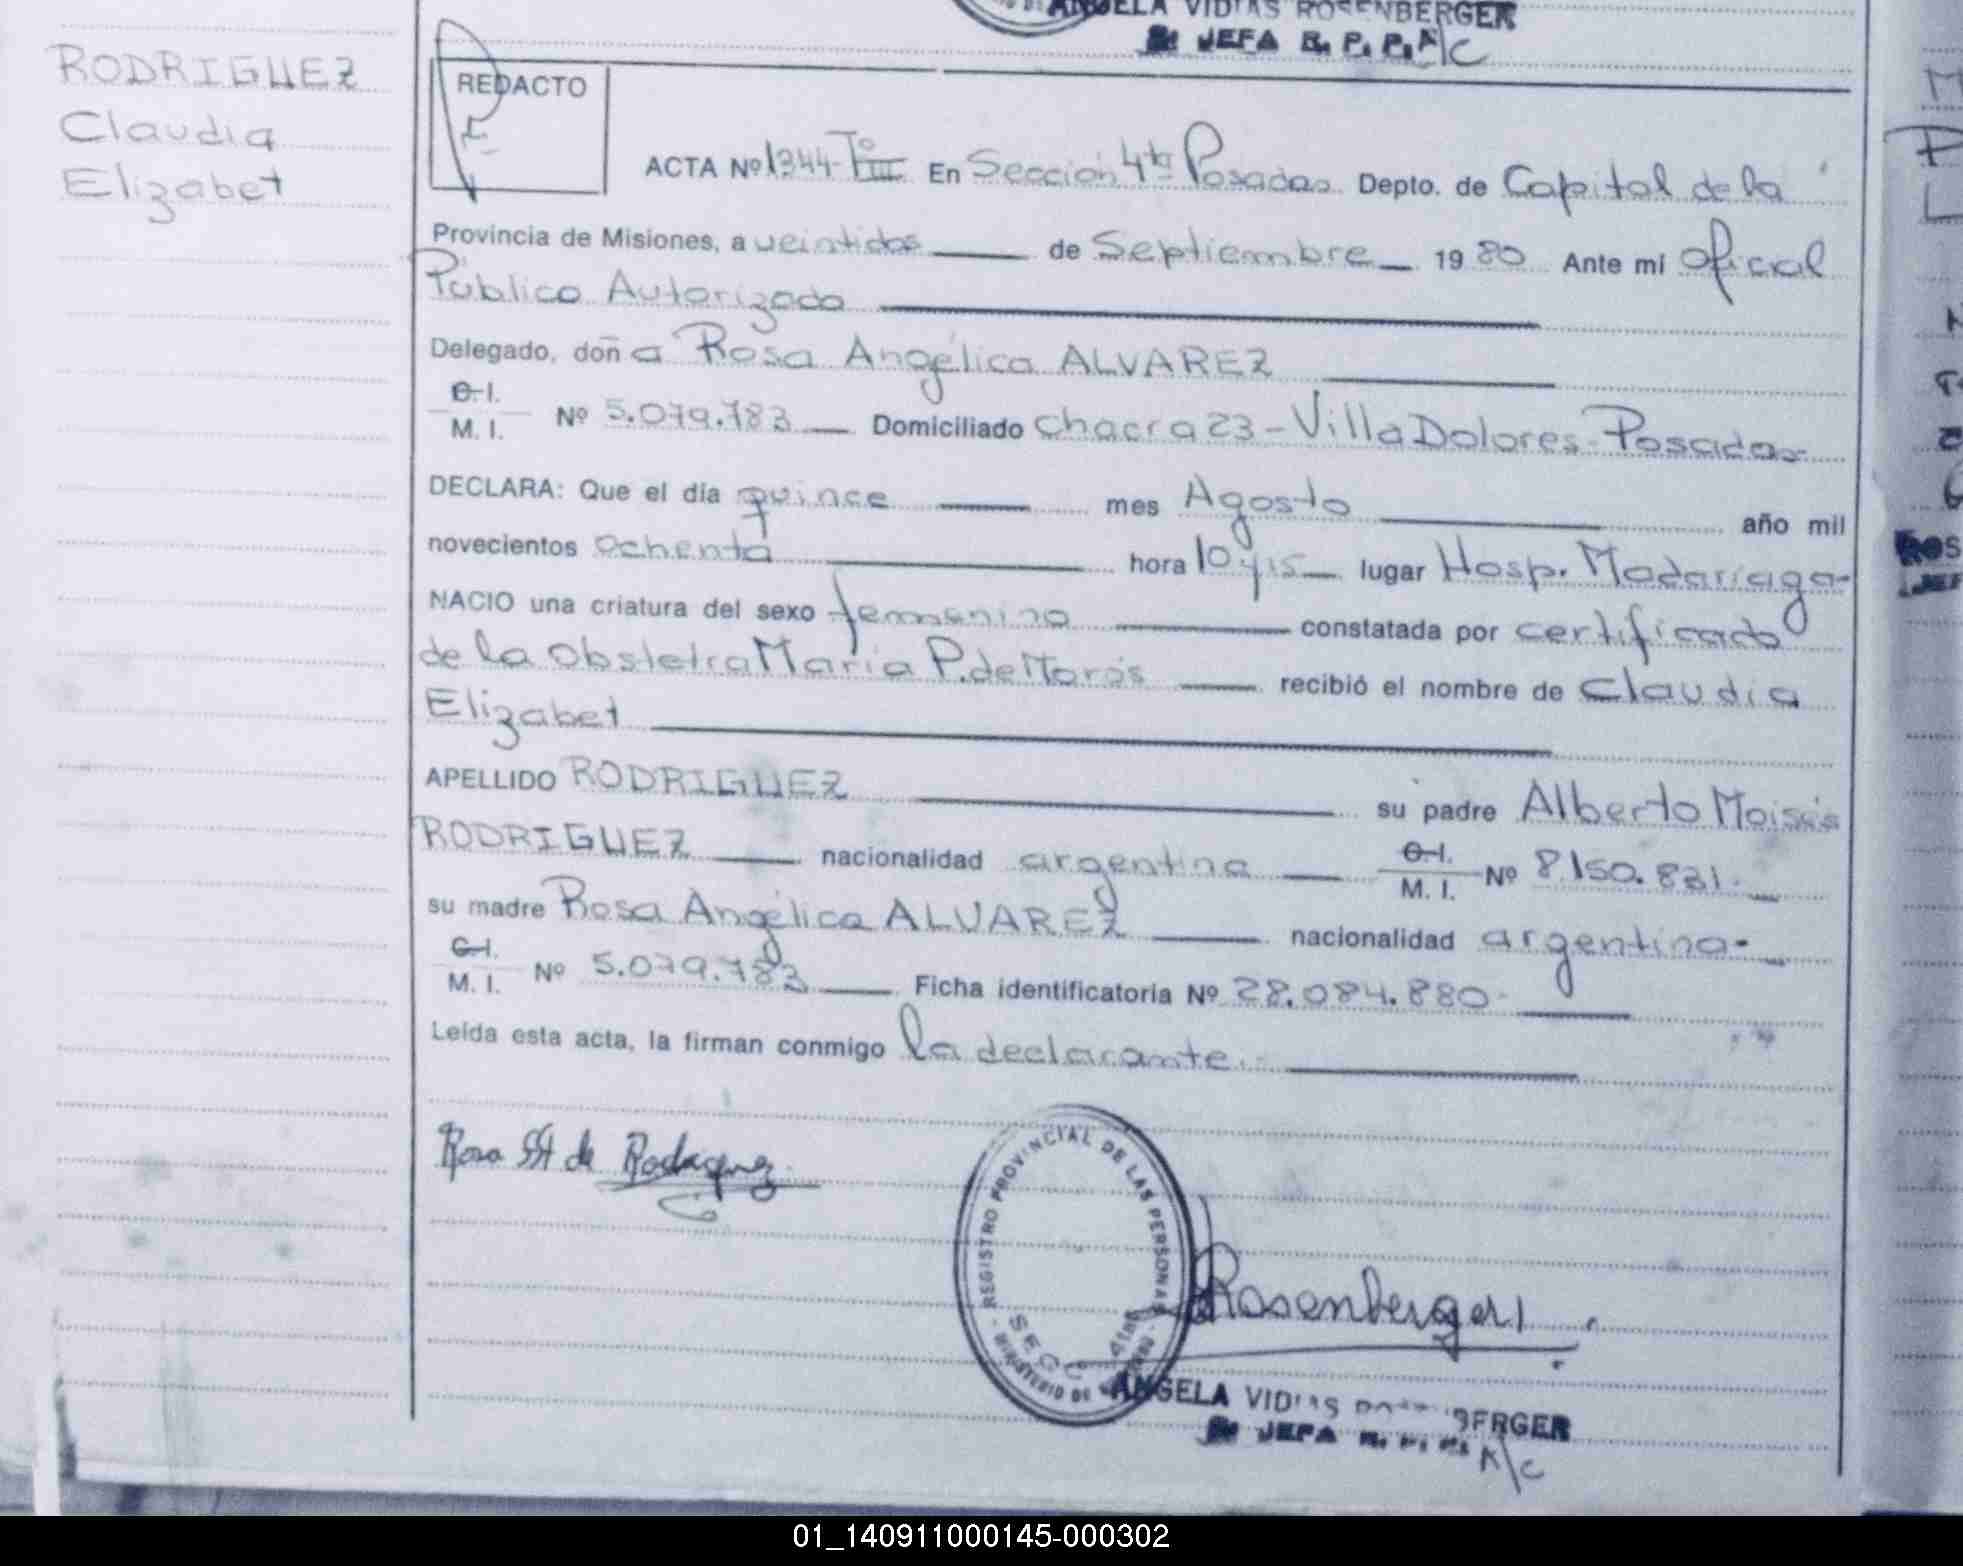 ANGELA VIDIAS ROSENBERGER
JEFA R. P. P. A/C
RODRIGUEZ
Claudia
Elizabet
REDACTO
ACTA Nº 1344-Tº III En Sección 4ta Posadas Depto. de Capital de la
Provincia de Misiones, a veintidos de Septiembre 19 80 Ante mi Oficial
Público Autorizado
Delegado, doña Rosa Angélica ALVAREZ
C.I.
M. I. Nº 5.079.783 Domiciliado Chacra 23-Villa Dolores-Posadas
DECLARA: Que el día quince mes Agosto año mil
novecientos ochenta hora 10 y 15 lugar Hosp. Madariaga-
NACIO una criatura del sexo femenino constatada por certificado
de la Obstetra María P. de recibió el nombre de Claudia
Elizabet
APELLIDO RODRIGUEZ su padre Alberto Moisés
RODRIGUEZ nacionalidad argentina C.I. M. I. Nº 8.150.831.
su madre Rosa Angélica ALVAREZ nacionalidad argentina-
C.I.
M. I. Nº 5.079.783 Ficha identificatoria Nº 28.084.880-
Leída esta acta, la firman conmigo la declarante.-
Rosa de Rodriguez
REGISTRO PROVINCIAL DE LAS PERSONAS
MINISTERIO DE
SECC 4ta
Rosenberger
ANGELA VIDIAS ROSENBERGER
JEFA R. P. P. A/C
01_140911000145-000302